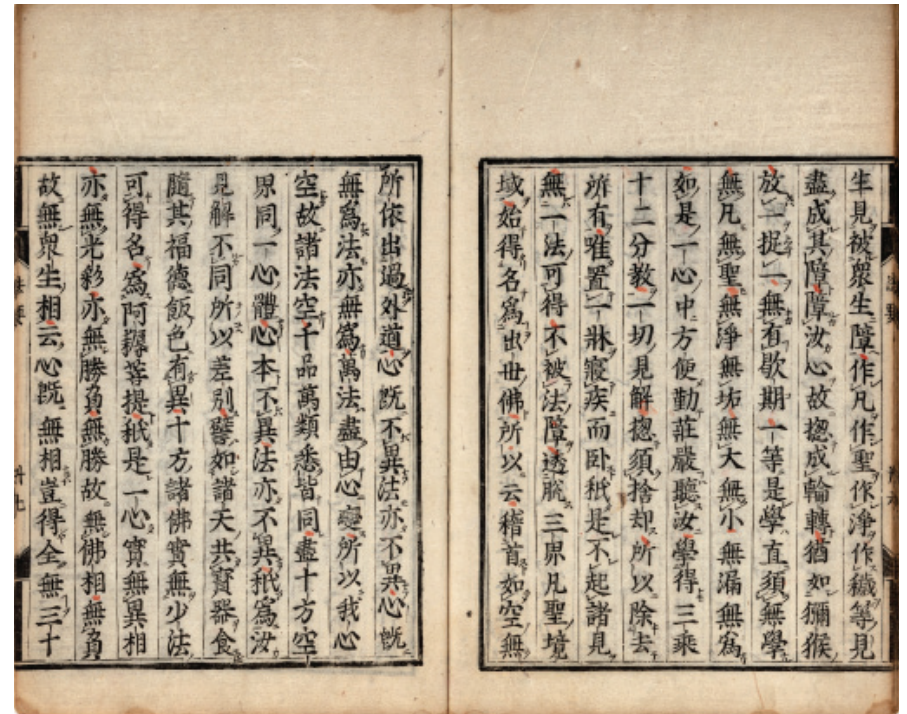 生見被衆生障作凡作聖作淨作穢等見
盡成其障障汝心故揔成輪轉猶如獼猴
放一捉一無有歇期一等是學直須無學
無凡無聖無淨無垢無大無小無漏無爲
如是一心中方便勤莊嚴聽汝學得三乘
十二分教一切見解揔須捨却所以除去
所有唯置一牀寢疾而卧秖是不起諸見
無一法可得不被法障透脫三界凡聖境
域始得名爲出世佛所以云稽首如空無
所依出過外道心既不異法亦不異心既
無爲法亦無爲萬法盡由心變所以我心
空故諸法空千品萬類悉皆同盡十方空
界同一心體心本不異法亦不異秖爲汝
見解不同所以差別譬如諸天共寶器食
隨其福德飯色有異十方諸佛實無少法
可得名爲阿耨菩提秖是一心實無異相
亦無光彩亦無勝負無勝故無佛相無負
故無衆生相云心既無相豈得全無三十